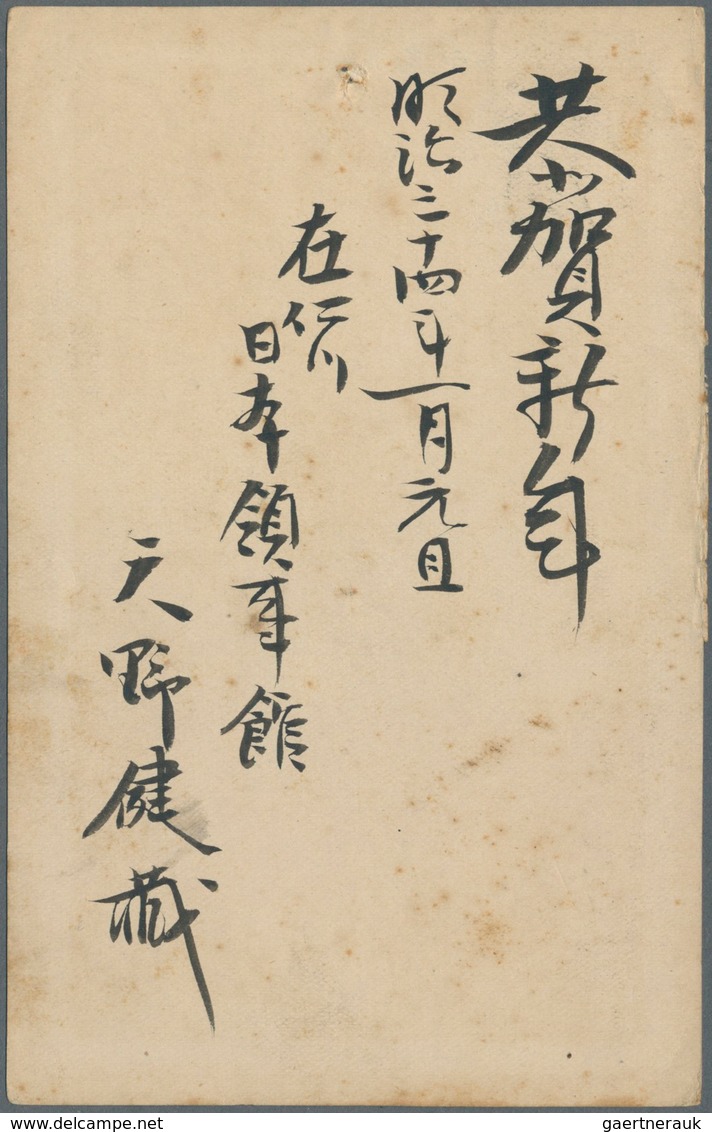 恭賀新年
明治三十四年一月元旦
在仁川
日本領事館
天野健蔵
delcampe.net
gaertnerauk